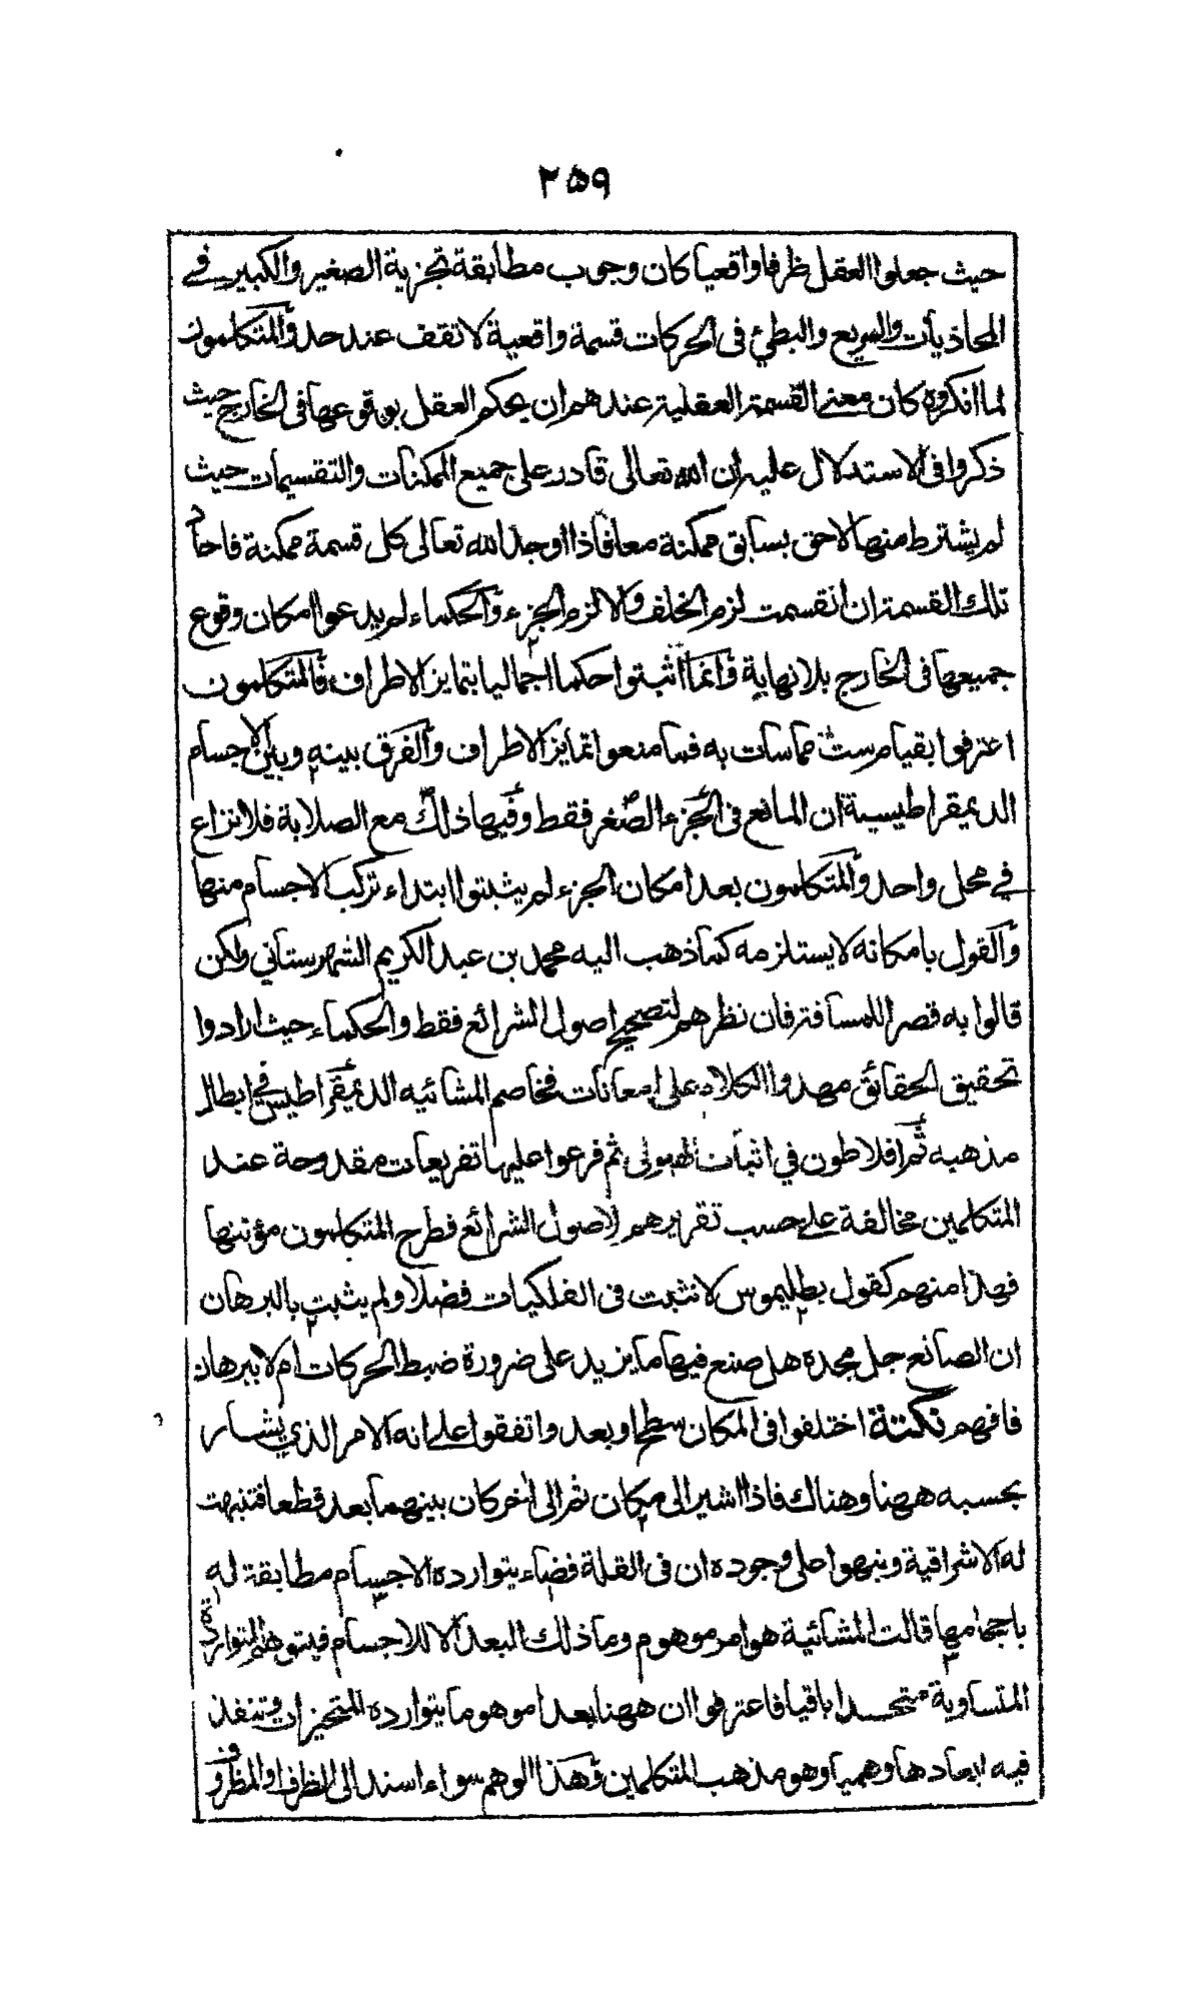 ٢٥٩
حيث جعلوا العقل ظرفا واقعيا كان وجوب مطابقة تجزية الصغير والكبير في
المحاذيات والسريع والبطئ فى الحركات قسمة واقعية لا تقف عند حد والمتكلمون
لما انكروه كان معنى القسمة العقلية عندهم ان يحكم العقل بوقوعها فى الخارج حيث
ذكروا فى الاستدلال عليه ان الله تعالى قادر على جميع الممكنات والتقسيمات حيث
لم يشترط منها لاحق بسابق ممكنة معا فاذا اوجد الله تعالى كل قسمة ممكنة فاحاد
تلك القسمة ان انقسمت لزم الخلف والا لزم الجزء والحكماء لم يدعوا امكان وقوع
جميعها فى الخارج بلا نهاية وانما اثبتوا حكما اجماليا بتمايز الاطراف والمتكلمون
اعترفوا بقيام ست مماسات به فما منعوا تمايز الاطراف والفرق بينه وبين الاجسام
الديمقراطيسية ان المانع فى الجزء الصغر فقط وفيها ذلك مع الصلابة فلا نزاع
في محل واحد والمتكلمون بعد امكان الجزء لم يثبتوا ابتداء تركب الاجسام منها
والقول بامكانه لا يستلزمه كما ذهب اليه محمد بن عبد الكريم الشهرستاني ولكن
قالوا به قصرا للمسافة فان نظرهم لتصحيح اصول الشرائع فقط والحكماء حيث ارادوا
تحقيق الحقائق مهدوا الكلام على امعانات فخاصم المشائيه الديمقراطيس في ابطال
مذهبه ثم افلاطون في اثبات الهيولى ثم فرعوا عليها تفريعات مقدوحة عند
المتكلمين مخالفة على حسب تقريرهم لاصول الشرائع فطرح المتكلمون مؤنتها
فهذا منهم كقول بطليموس لا نثبت فى الفلكيات فضلا ولم يثبت بالبرهان
ان الصانع جل مجده هل صنع فيها ما يزيد على ضرورة ضبط الحركات ام لا ببرهان
فافهم نكتة اختلفوا فى المكان سطح او بعد واتفقوا على انه الامر الذي يشار
بحسبه ههنا وهناك فاذا اشير الى مكان ثم الى اخر كان بينهما بعد قطعا فتنبهت
له الاشراقية ونبهوا على وجوده ان فى القلة فضاء يتوارده الاجسام مطابقة له
باحجامها قالت المشائية هو امر موهوم وما ذلك البعد الا للاجسام فيتوهم المتواردة
المتساوية متحدا باقيا فاعترفوا ان ههنا بعدا موهوما يتوارده المتحيزات وتنفذ
فيه ابعادها وهميا وهو مذهب المتكلمين وهذا الوهم سواء اسند الى الظرف او المظروف